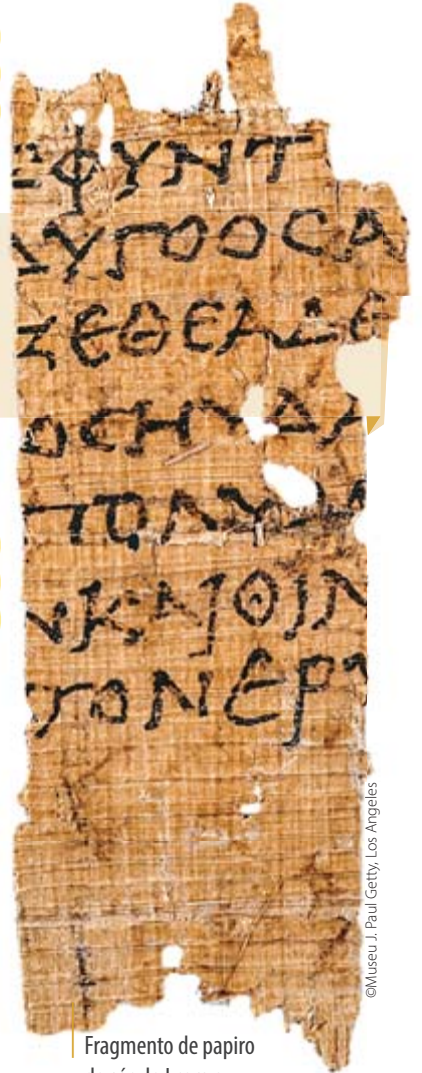 ΕΦΥΝΤ
ΔΥΓΟΟϹΑ
ΖΕΘΕΑΔΕ
ΟϹΗΥΔΑ
ΠΟΛΥ
ΝΚΑΙΘΙΝ
ΤΟΝΕΡΥ
©Museu J. Paul Getty, Los Angeles
Fragmento de papiro